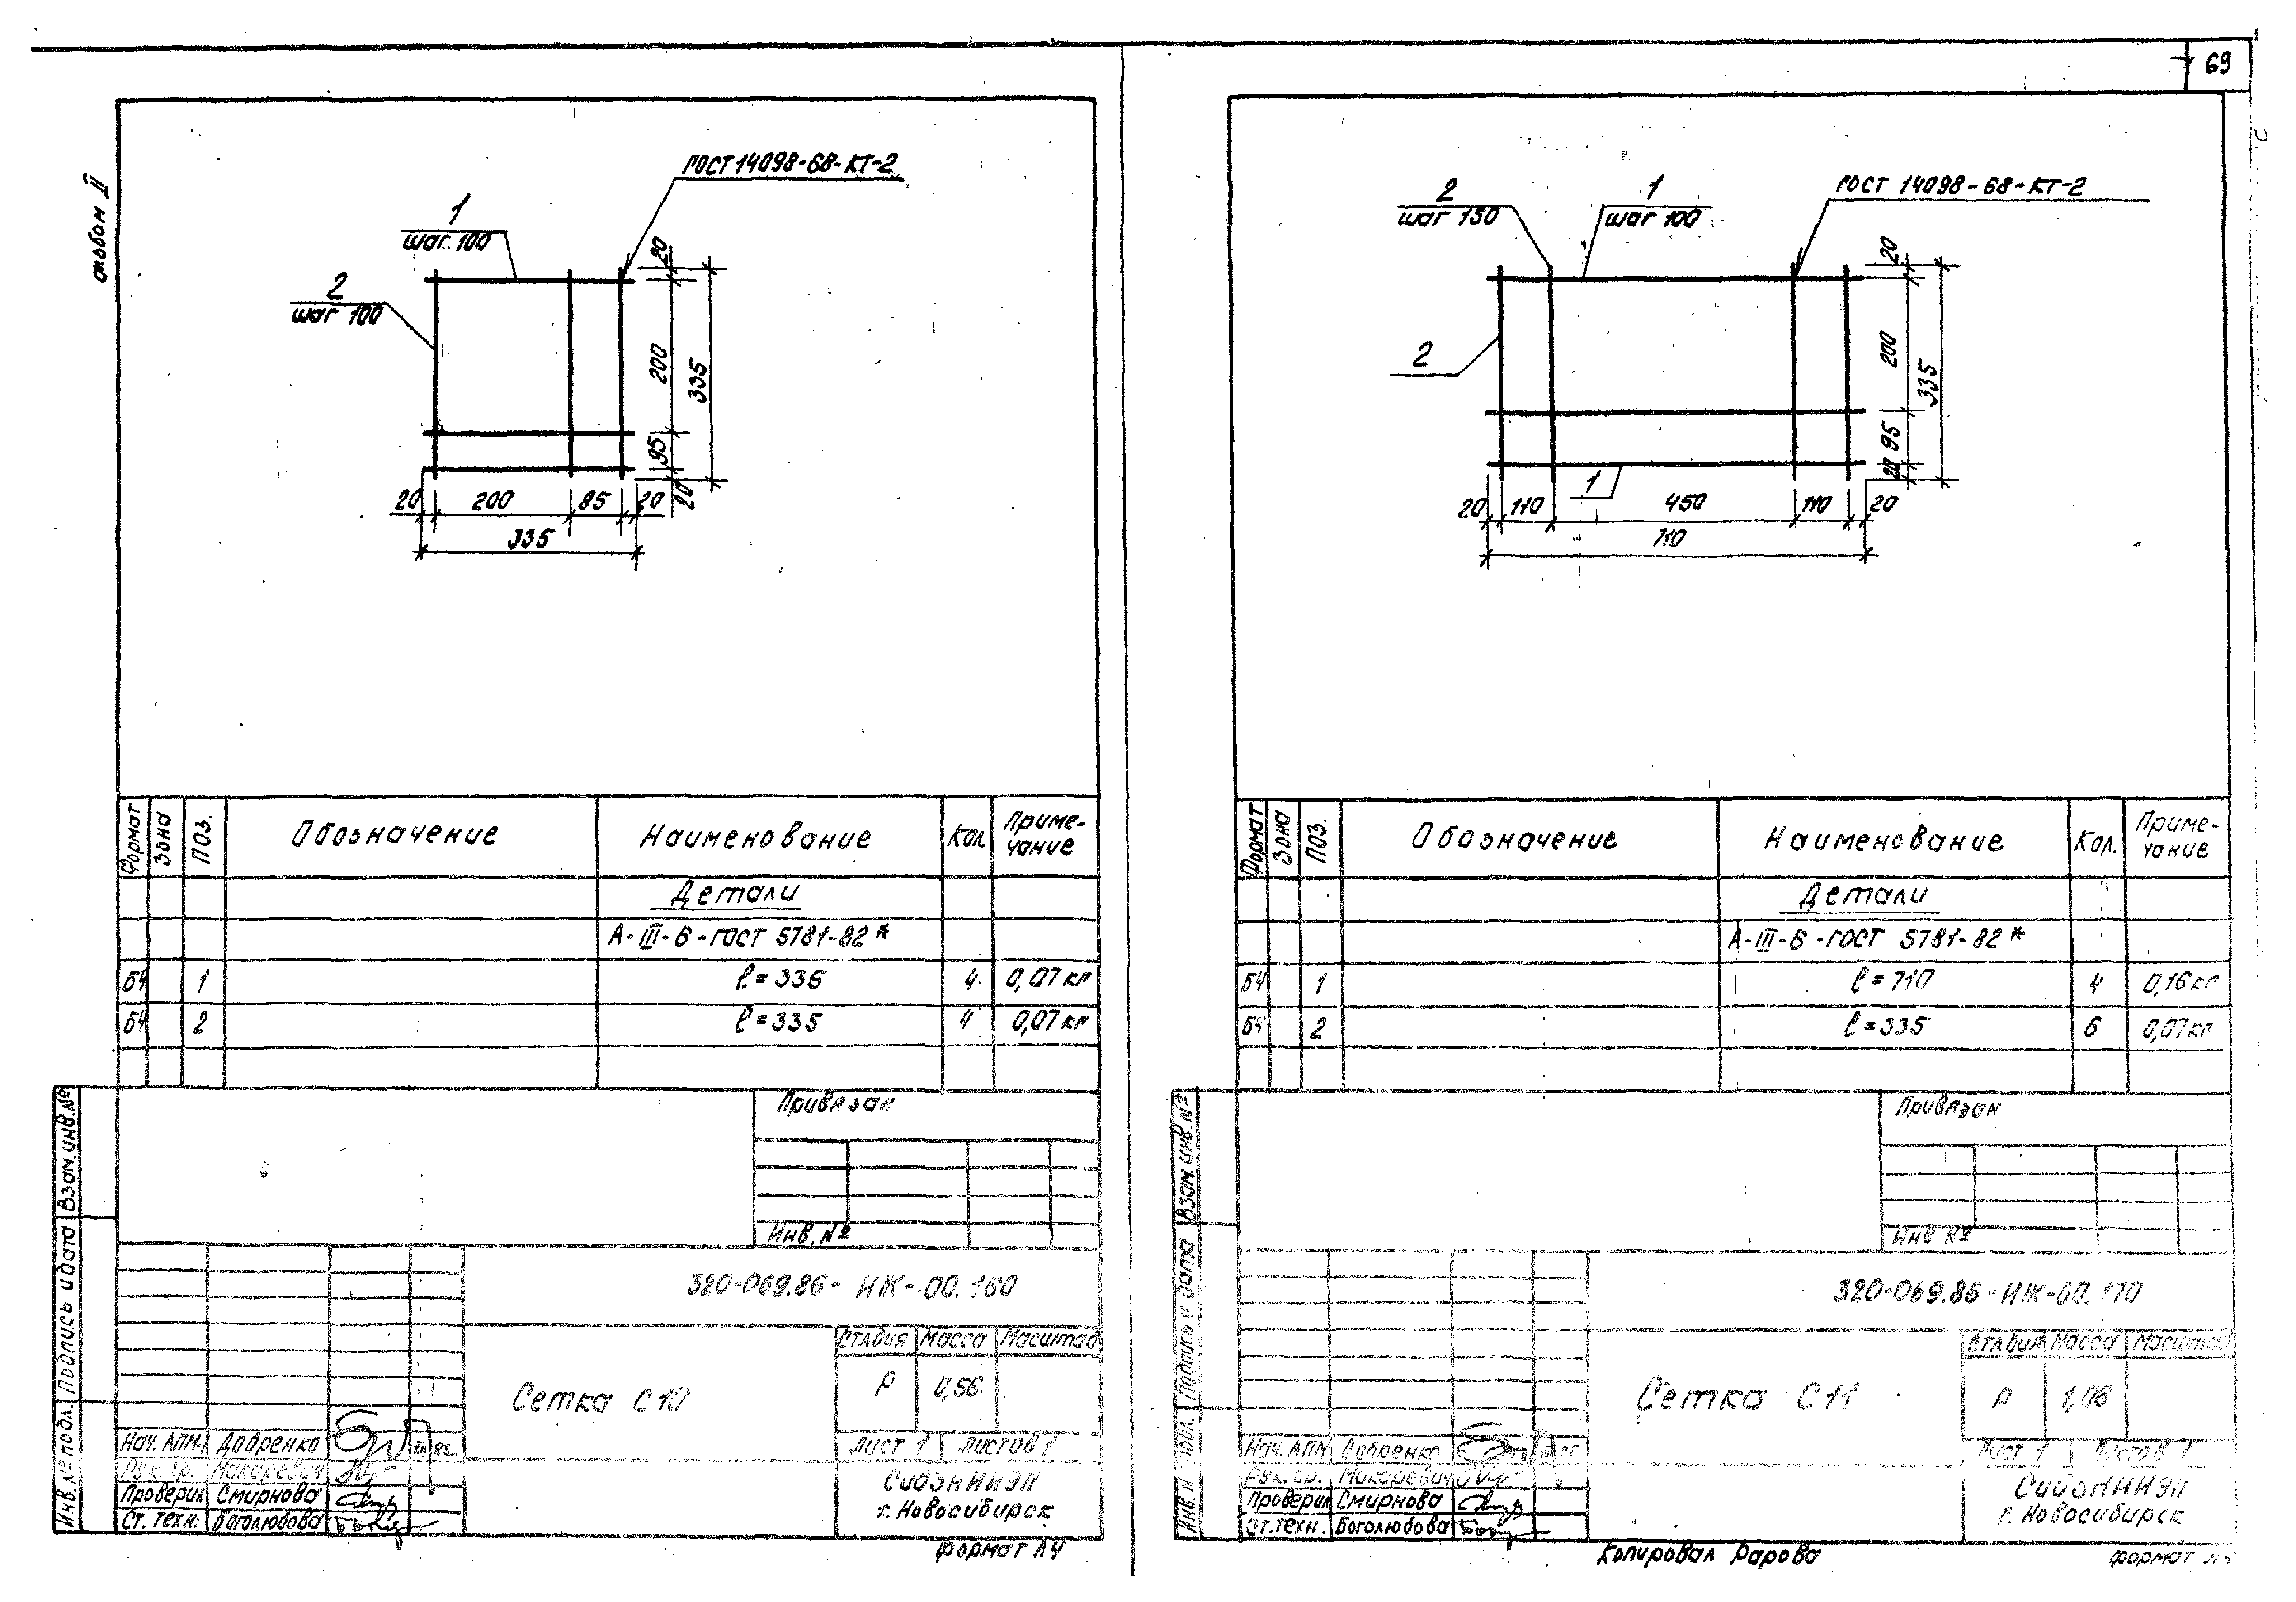 69
альбом II
ГОСТ 14098-68-КТ-2
1
шаг 100
2
шаг 100
20
200
335
95
20
20
200
95
20
335
Формат
Зона
Поз.
Обозначение
Наименование
Кол
Приме-
чание
Детали
А-III-6-ГОСТ 5781-82*
БЧ 1 ℓ=335 4 0,07кг
БЧ 2 ℓ=335 4 0,07кг
Привязан
Инв. №
320-069.86-ИЖ-00.160
Стадия Масса Масштаб
Сетка С10
Р 0,56
Лист 1 Листов 1
Нач. АПМ
Рук. гр. Макаревич
Проверил Смирнова
Ст. техн. Боголюбова
СибЗНИИЭП
г. Новосибирск
Взам.инв.№
Подпись и дата
Инв.№ подл.
формат А4
ГОСТ 14098-68-КТ-2
2
шаг 150
1
шаг 100
2
1
20
200
335
95
20
20
110
450
110
20
710
Формат
Зона
Поз.
Обозначение
Наименование
Кол.
Приме-
чание
Детали
А-III-6-ГОСТ 5781-82*
БЧ 1 ℓ=710 4 0,16кг
БЧ 2 ℓ=335 6 0,07кг
Привязан
Инв. №
320-069.86-ИЖ-00.170
Стадия Масса Масштаб
Сетка С11
Р 1,06
Лист 1 Листов 1
Нач. АПМ
Рук. гр. Макаревич
Проверил Смирнова
Ст.техн. Боголюбова
СибЗНИИЭП
г. Новосибирск
Взам.инв.№
Подпись и дата
Копировал Рарова
формат А4